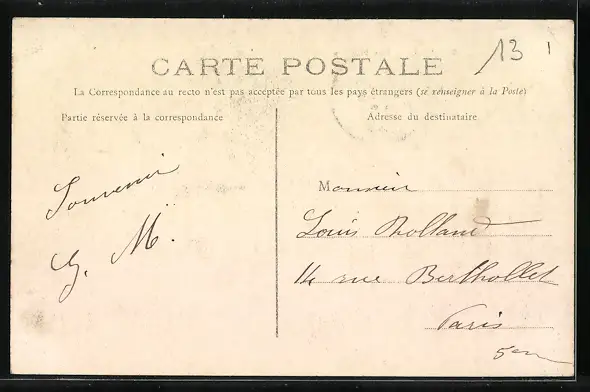 13 1
CARTE POSTALE
La Correspondance au recto n'est pas acceptée par tous les pays étrangers (se renseigner à la Poste)
Partie réservée à la correspondance
Adresse du destinataire
Souvenir
G. M.
Monsieur
Louis Rolland
14 rue Berthollet
Paris
5em